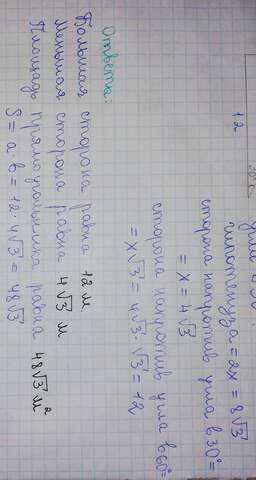 12
30°
гипотенуза = 2x = 8√3
сторона напротив угла в 30° =
= x = 4√3
сторона напротив угла в 60° =
= x√3 = 4√3 · √3 = 12
Ответы:
Большая сторона равна 12 м
Меньшая сторона равна 4√3 м
Площадь прямоугольника равна 48√3 м²
S = a · b = 12 · 4√3 = 48√3